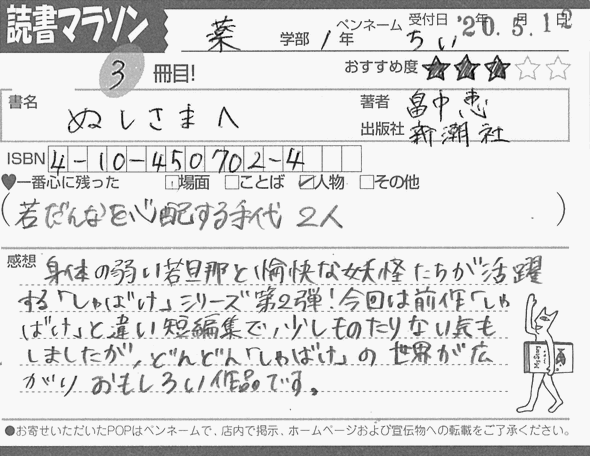 読書マラソン
薬 学部 1年 ペンネーム ちぃ 受付日 '20.5.12 年 月 日
3 冊目! おすすめ度 ★★★☆☆
書名 ぬしさまへ
著者 畠中恵
出版社 新潮社
ISBN 4-10-450702-4
♥一番心に残った □場面 □ことば ☑人物 □その他
(若だんなを心配する手代 2人)
感想 身体の弱い若旦那と愉快な妖怪たちが活躍
する「しゃばけ」シリーズ第2弾!今回は前作「しゃ
ばけ」と違い短編集で、少しものたりない気も
しましたが、どんどん「しゃばけ」の世界が広
がりおもしろい作品です。
●お寄せいただいたPOPはペンネームで、店内で掲示、ホームページおよび宣伝物への転載をご了承ください。